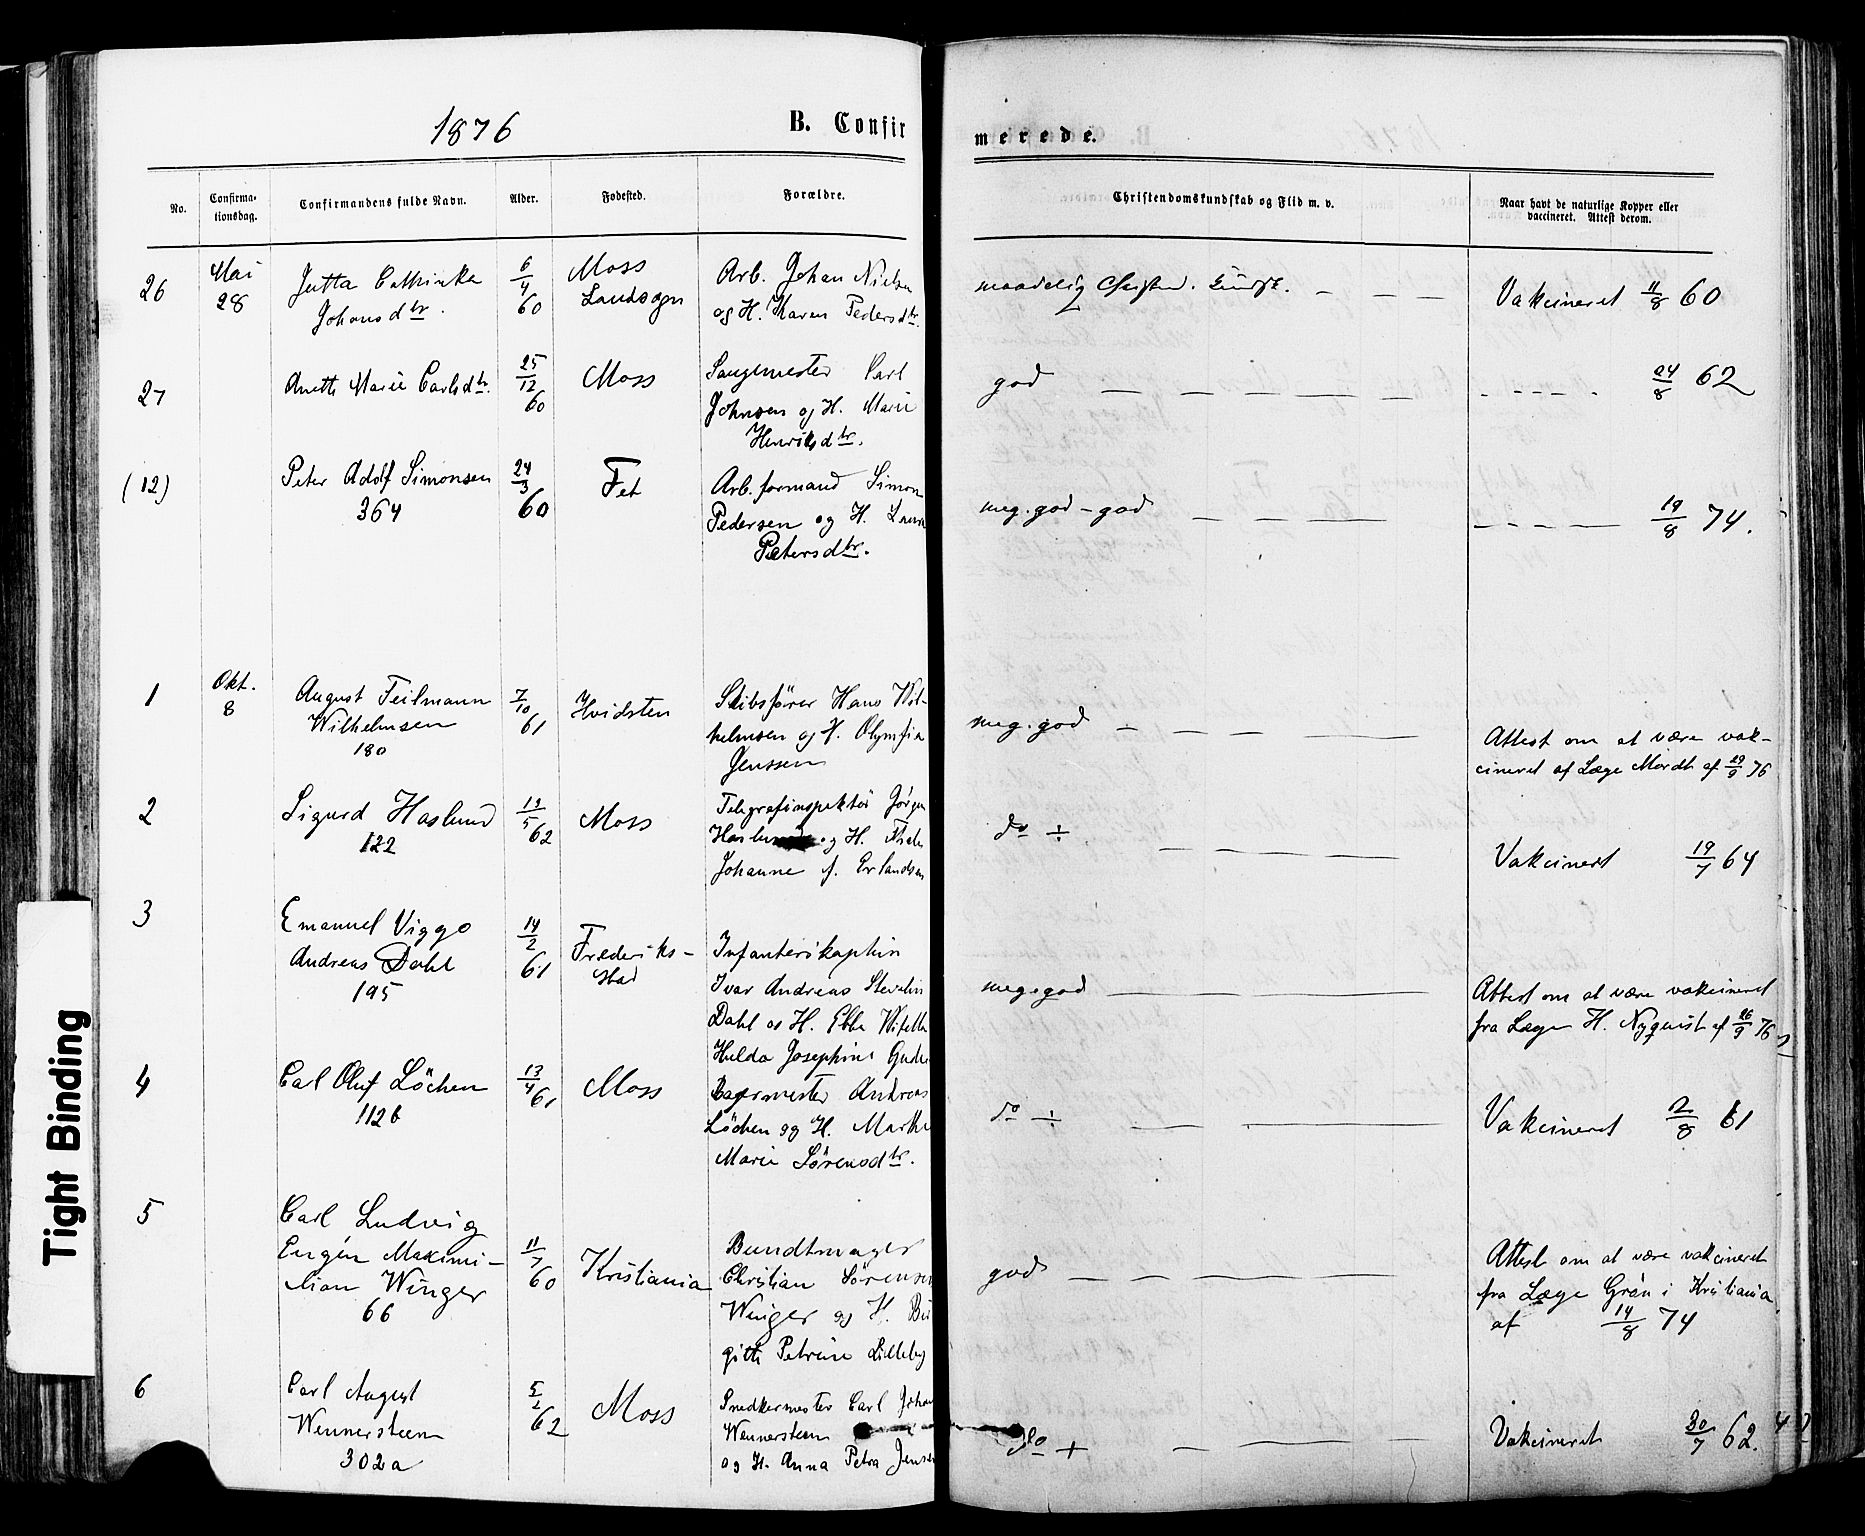 1876
B. Confir
merede.
No.
Confirma-
tionsdag.
Confirmandens fulde Navn.
Alder.
Fødested.
Forældre.
Christendomskundskab og Flid m. v.
Naar havt de naturlige Kopper eller
vaccineret. Attest derom.
26
Mai
28
Jutta Cathinka
Johansdtr.
6/4
60
Moss
Landsogn
Arb. Johan Nielsen
og H. Karen Pedersdtr.
maadelig Christend. Kundsk. — — —
Vakcineret 11/8 60
27
Anette Marie Carlsdtr.
25/12
60
Moss
Saugmester Carl
Johnsen og H. Marie
Henriksdtr.
god — — — — —
- - - - - 24/8 62
(12)
Peter Adolf Simonsen
364
24/3
60
Fet
Arb. formand Simon
Pedersen og H.
Petersdtr.
meg. god - god — — — —
- - - - - 19/8 74.
1
Okt.
8
August Feilmann
Wilhelmsen
180
7/10
61
Hvidsten
Skibsfører Hans Wil-
helmsen og H. Olymfia
Jenssen
meg. god — — — —
Attest om at være vak-
cineret af Læge Mordt af 29/9 76
2
Sigurd Haslund
122
19/5
62
Moss
Telegrafinspektør Jörgen
Haslund og H.
Johanne f. Erlandsen
do ÷ — — — —
Vakcinert 19/7 64
3
Emanuel Viggo
Andreas Dahl
195
14/2
61
Frederiks-
stad
Infanterikaptein
Ivar Andreas
Dahl og H. Ebba
Hulda Josephine Gude
meg. god — — — —
Attest om at være vakcineret
fra Læge H. Nyquist af 26/9 76
4
Carl Oluf Löchen
112b
13/4
61
Moss
Bagermester Andreas
Löchen og H. Marthe
Marie Sörensdtr.
do ÷ — — — —
Vakcineret 2/8 61
5
Carl Ludvig
Eugén Maximi-
lian Winger
66
11/7
60
Kristiania
Bundtmager
Christian Sörensen
Winger og H. Bir
gitte Petrine Lilleby
god — — — —
Attest om at være vakcineret
fra Læge Grön i Kristiania
af 14/8 74
6
Carl August
Wennersteen
302a
5/2
62
Moss
Snedkermester Carl Johan
Wennersteen
og H. Anna Petra Jensen
do + — — — —
Vakcineret 30/7 62.
Tight Binding